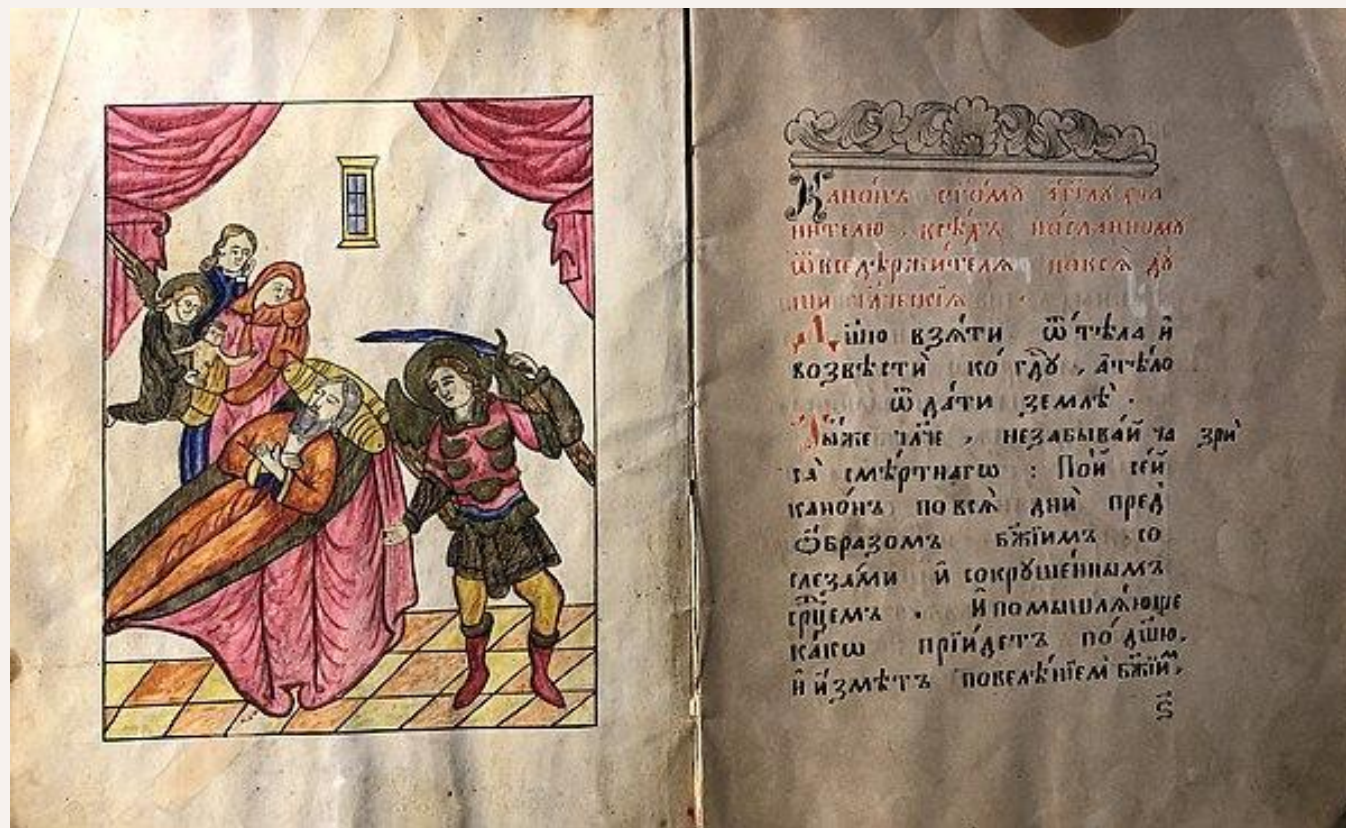 Кано́нъ ст҃о́мꙋ а҆́гг҃лꙋ хра
ни́телю . всѣ́мъ по́сланномꙋ
ѿвседержи́телѧ
ши
Дш҃ꙋ взѧ́ти ѿтѣ́ла и҆
возвѣстѝ ко гд҇ꙋ , а҆тѣ́ло
ѿда́ти землѣ̀ .
Ты́же чл҃че , незабыва́й ча зрѝ
са̀ сме́ртнагѡ : По́й се́й
кано́нъ повсѧ̀ днѝ пред̾
ѡ҆́бразомъ бж҃їимъ со
слеза́ми и҆ сокрꙋше́ннымъ
ср҇цемъ . И҆помышлѧ́юще
ка́кѡ прїи́детъ по́дш҃ꙋ .
и҆ и҆́зметъ повелѣ́нїем̾ бж҃їим̾ .
ѕ҃